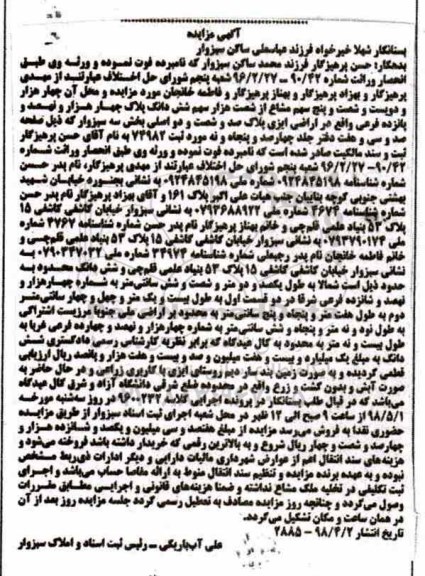 آگهی مزایده
بستانکار: شهلا خیرخواه فرزند عباسعلی ساکن سبزوار
بدهکار: حسن پرهیزگار فرزند محمد ساکن سبزوار که نامبرده فوت نموده و ورثه وی طبق
انحصار وراثت شماره ۹۰/۴۲ – ۹۶/۲/۲۷ شعبه پنجم شورای حل اختلاف عبارتند از مهدی
پرهیزگار و بهزاد پرهیزگار و بهناز پرهیزگار و فاطمه خانجان مورد مزایده و محل آن چهار هزار
و دویست و شصت و پنج سهم مشاع از شصت هزار سهم شش دانگ پلاک چهار هزار و نهصد و
پانزده فرعی واقع در اراضی ایزی پلاک صد و شصت و دو اصلی بخش سه سبزوار که ذیل صفحه
صد و سی و هفت دفتر جلد چهارصد و پنجاه و نه مورد ثبت ۷۴۹۸۲ به نام آقای حسن پرهیزگار
ثبت و سند مالکیت صادر شده است که نامبرده فوت نموده و ورثه وی طبق انحصار وراثت شماره
۹۰/۴۲–۹۶/۲/۲۷ شعبه پنجم شورای حل اختلاف عبارتند از مهدی پرهیزگار، نام پدر حسن
شماره شناسنامه شماره ملی به نشانی بجنورد خیابان شهید
بهشتی جنوبی کوچه بنابیان جنب هیات علی اکبر پلاک ۱۶۱ و آقای بهزاد پرهیزگار نام پدر حسن
شماره شناسنامه شماره ملی ۰۷۹۳۶۸۸۹۲۲ به نشانی سبزوار خیابان کاشفی کاشفی ۱۵
پلاک ۵۳ بنیاد علمی قلم‌چی و خانم بهناز پرهیزگار نام پدر حسن شماره شناسنامه ۳۷۶۷ شماره
ملی به نشانی سبزوار خیابان کاشفی کاشفی ۱۵ پلاک ۵۳ بنیاد علمی قلم‌چی و
خانم فاطمه خانجان نام پدر رجبعلی شماره شناسنامه ۳۴۹۷۳ شماره ملی به
نشانی سبزوار خیابان کاشفی کاشفی ۱۵ پلاک ۵۳ بنیاد علمی قلم‌چی و شش دانگ محدود به
حدود ذیل است شمالا به طول یکصد و دو متر و شصت و شش سانتی‌متر به شماره چهارهزار و
نهصد و شانزده فرعی شرقا در دو قسمت اول به طول بیست و یک متر و چهل و چهار سانتی‌متر
دوم به طول هفت متر و پنجاه و پنج سانتی‌متر به محدود بر اراضی ملی جنوبا مرزیست اشتراکی
به طول نود و نه متر و پنجاه و شش سانتی‌متر به شماره چهارهزار و نهصد و چهارده فرعی غربا به
طول بیست و نه متر به محدود به کال عیدگاه که برابر نظریه کارشناس رسمی دادگستری شش
دانگ به مبلغ یک میلیارد و بیست و هفت میلیون و صد و بیست و هفت هزار و پانصد ریال ارزیابی
قطعی گردیده و به عبارت زمین بند سار دیم روستای ایزی با کاربری زراعی و در حال حاضر به
صورت آیش و بدون کشت و زرع واقع در محدوده ضلع شرقی دانشگاه آزاد و شرق کال عیدگاه
می‌باشد که در قبال طلب بستانکار در پرونده اجرایی کلاسه در روز سه‌شنبه مورخه
۹۸/۵/۱ از ساعت ۹ صبح الی ۱۲ ظهر در محل شعبه اجرای ثبت اسناد سبزوار از طریق مزایده
حضوری نقدا به فروش می‌رسد مزایده از مبلغ هفتصد و سی میلیون و یکصد و شانزده هزار و
چهارصد و شصت و چهار ریال شروع و به بالاترین رقمی که خریدار داشته باشد فروخته می‌شود و
هزینه‌های سند انتقال اعم از عوارض شهرداری مالیات دارایی و دیگر ادارات ذی‌ربط مشخص
نبوده و به عهده برنده مزایده و تنظیم سند انتقال منوط به ارائه مفاصا حساب می‌باشد و اجرای
ثبت تکلیفی در تخلیه ملک مشاع نداشته و ضمنا هزینه‌های قانونی و اجرایی مطابق مقررات
وصول می‌گردد و چنانچه روز مزایده مصادف به تعطیل رسمی گردد جلسه مزایده روز بعد از آن
در همان ساعت و مکان تشکیل می‌گردد.
تاریخ انتشار ۹۸/۴/۲ – ۲۸۸۵
علی آب‌باریکی – رئیس ثبت اسناد و املاک سبزوار